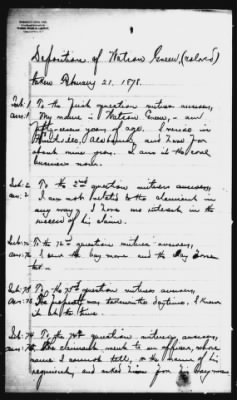 Deposition of Watson Green, (colored)
taken February 21, 1878.
Int. 1 To the first question witness answers,
ans. 1 My name is Watson Green, - am
Fifty-seven years of age. I reside in
Huntsville, Alabama, and have for
about nine years. I am in the coal
business now.
Int. 2. To the 2nd question witness answers,
ans. 2 I am not related to the claimant in
any way. I have no interest in the
success of his claim.
To the 72nd question witness answers,
I saw the bay mare and the Bay horse
To the 73rd question witness answers,
The property was taken in the daytime, I know
it at the time.
Int. 74 To the 74th question witness answers,
The claimant went to an officer, whose
name I cannot tell, or the name of his
regiment, and asked him for his bay mare